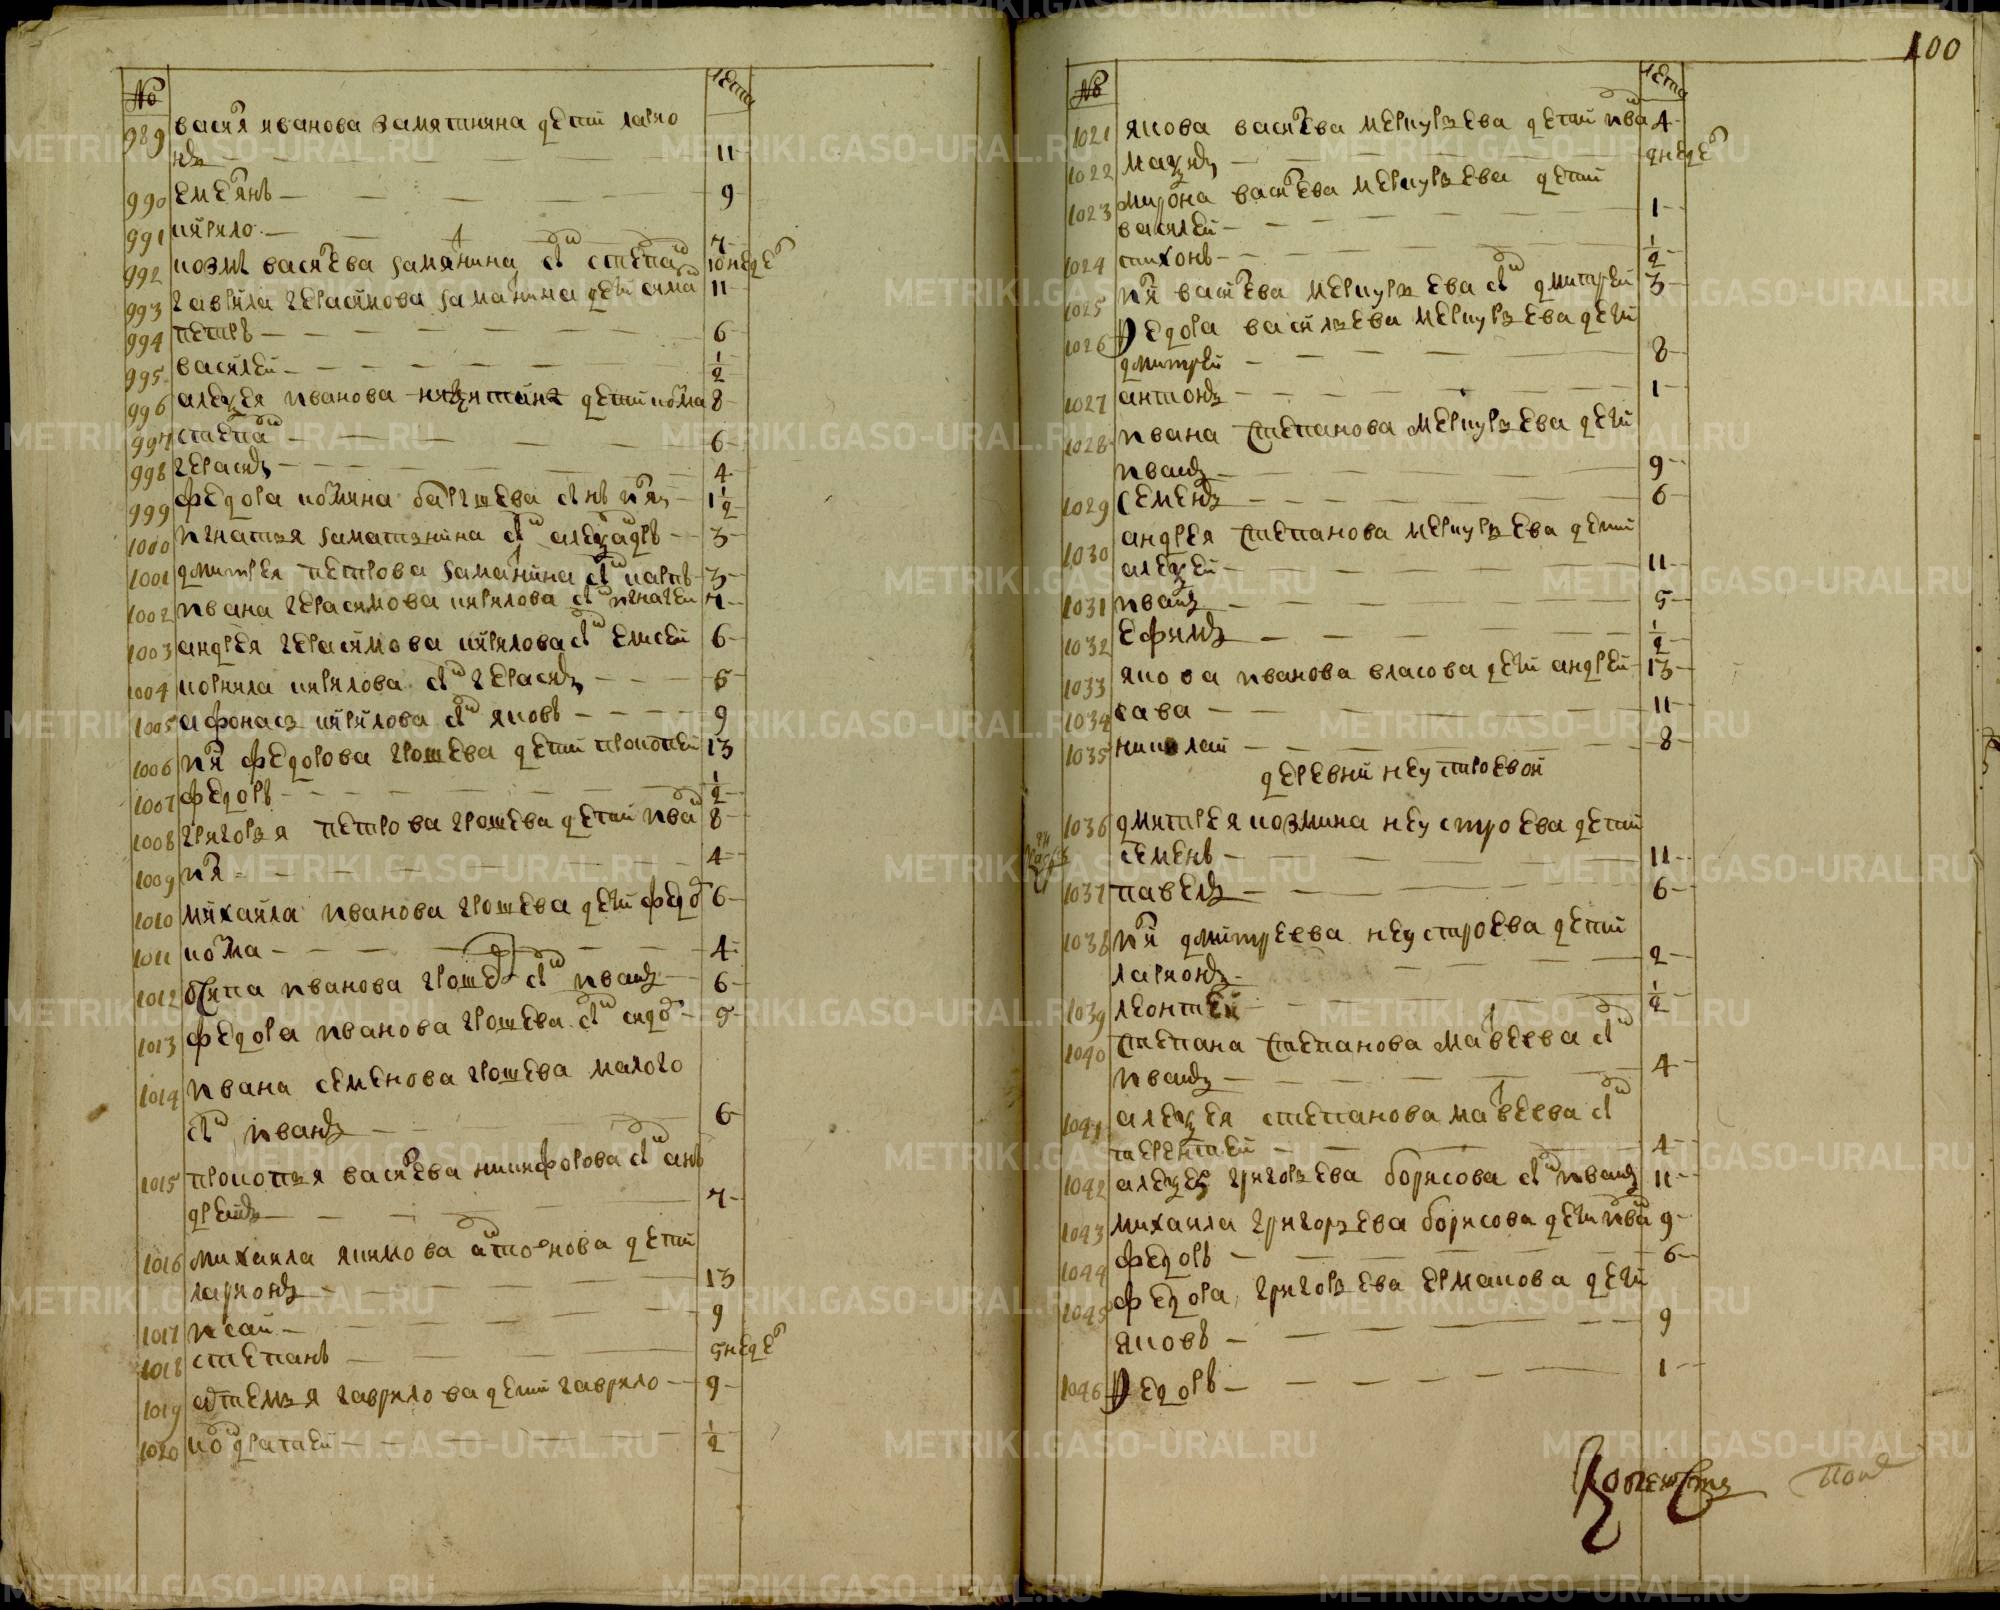 № лета
989 васия иванова замятнина дети ларио
нъ 11
990 емелянъ 9
991 кирило 7
992 козмы васиева замятнина снъ степанъ 10 недел
993 гаврила герасимова заматнина дети сима 11
994 петръ 6
995 василей 1/2
996 алеѯея иванова дети козма 8
997 степанъ 6
998 герасимъ 4
999 федора козмина снъ илья 1 1/2
1000 игнатья заматьнина снъ алеѯандръ 3
1001 дмитрея петрова заматнина снъ карпъ 3
1002 ивана герасимова кирилова снъ игнатеи 7
1003 андрея герасимова кирилова снъ елисеи 6
1004 корнила кирилова снъ герасимъ 5
1005 афонася кирилова снъ яковъ 9
1006 ильи федорова грошева дети прокопеи 13
1007 федоръ 1/2
1008 григорья петрова грошева дети иванъ 8
1009 илья 4
1010 михаила иванова грошева дети федоръ 6
1011 козма 4
1012 осипа иванова грошева снъ иванъ 6
1013 федора иванова грошева снъ сидоръ 5
1014 ивана семенова грошева малого
снъ иванъ 6
1015 прокопья васиева никифорова снъ анъ
дреянъ 7
1016 михаила якимова антонова дети
ларионъ 13
1017 исаи 9
1018 степанъ 5 недел
1019 артемья гаврилова дети гаврило 9
1020 кондратеи 1/2
100
№ лета
1021 якова васиева меркурьева дети иванъ 4
1022 маѯимъ 2 недел
1023 мирона васиева меркурьева дети
василеи 1
1024 тихонъ 1/2
1025 ильи васиева меркурьева снъ дмитреи 3
1026 федора васильева меркурьева дети
дмитреи 8
1027 антонъ 1
1028 ивана степанова меркурьева дети
иванъ 9
1029 семенъ 6
1030 андрея степанова меркурьева дети
алеѯеи 11
1031 иванъ 5
1032 ефимъ 1/2
1033 якова иванова власова дети андреи 13
1034 сава 11
1035 николаи 8
деревни неустроевой
1036 дмитрея козмина неустроева дети
семенъ 11
1037 павелъ 6
1038 ильи дмитреева неустроева дети
ларионъ 2
1039 леонтеи 1/2
1040 степана степанова матвеева снъ
иванъ 4
1041 алеѯея степанова матвеева снъ
терентеи 4
1042 алеѯея григорьева борисова снъ иванъ 11
1043 михаила григорьева борисова дети иванъ 9
1044 федоръ 6
1045 федора григорьева ермакова дети
яковъ 9
1046 федоръ 1